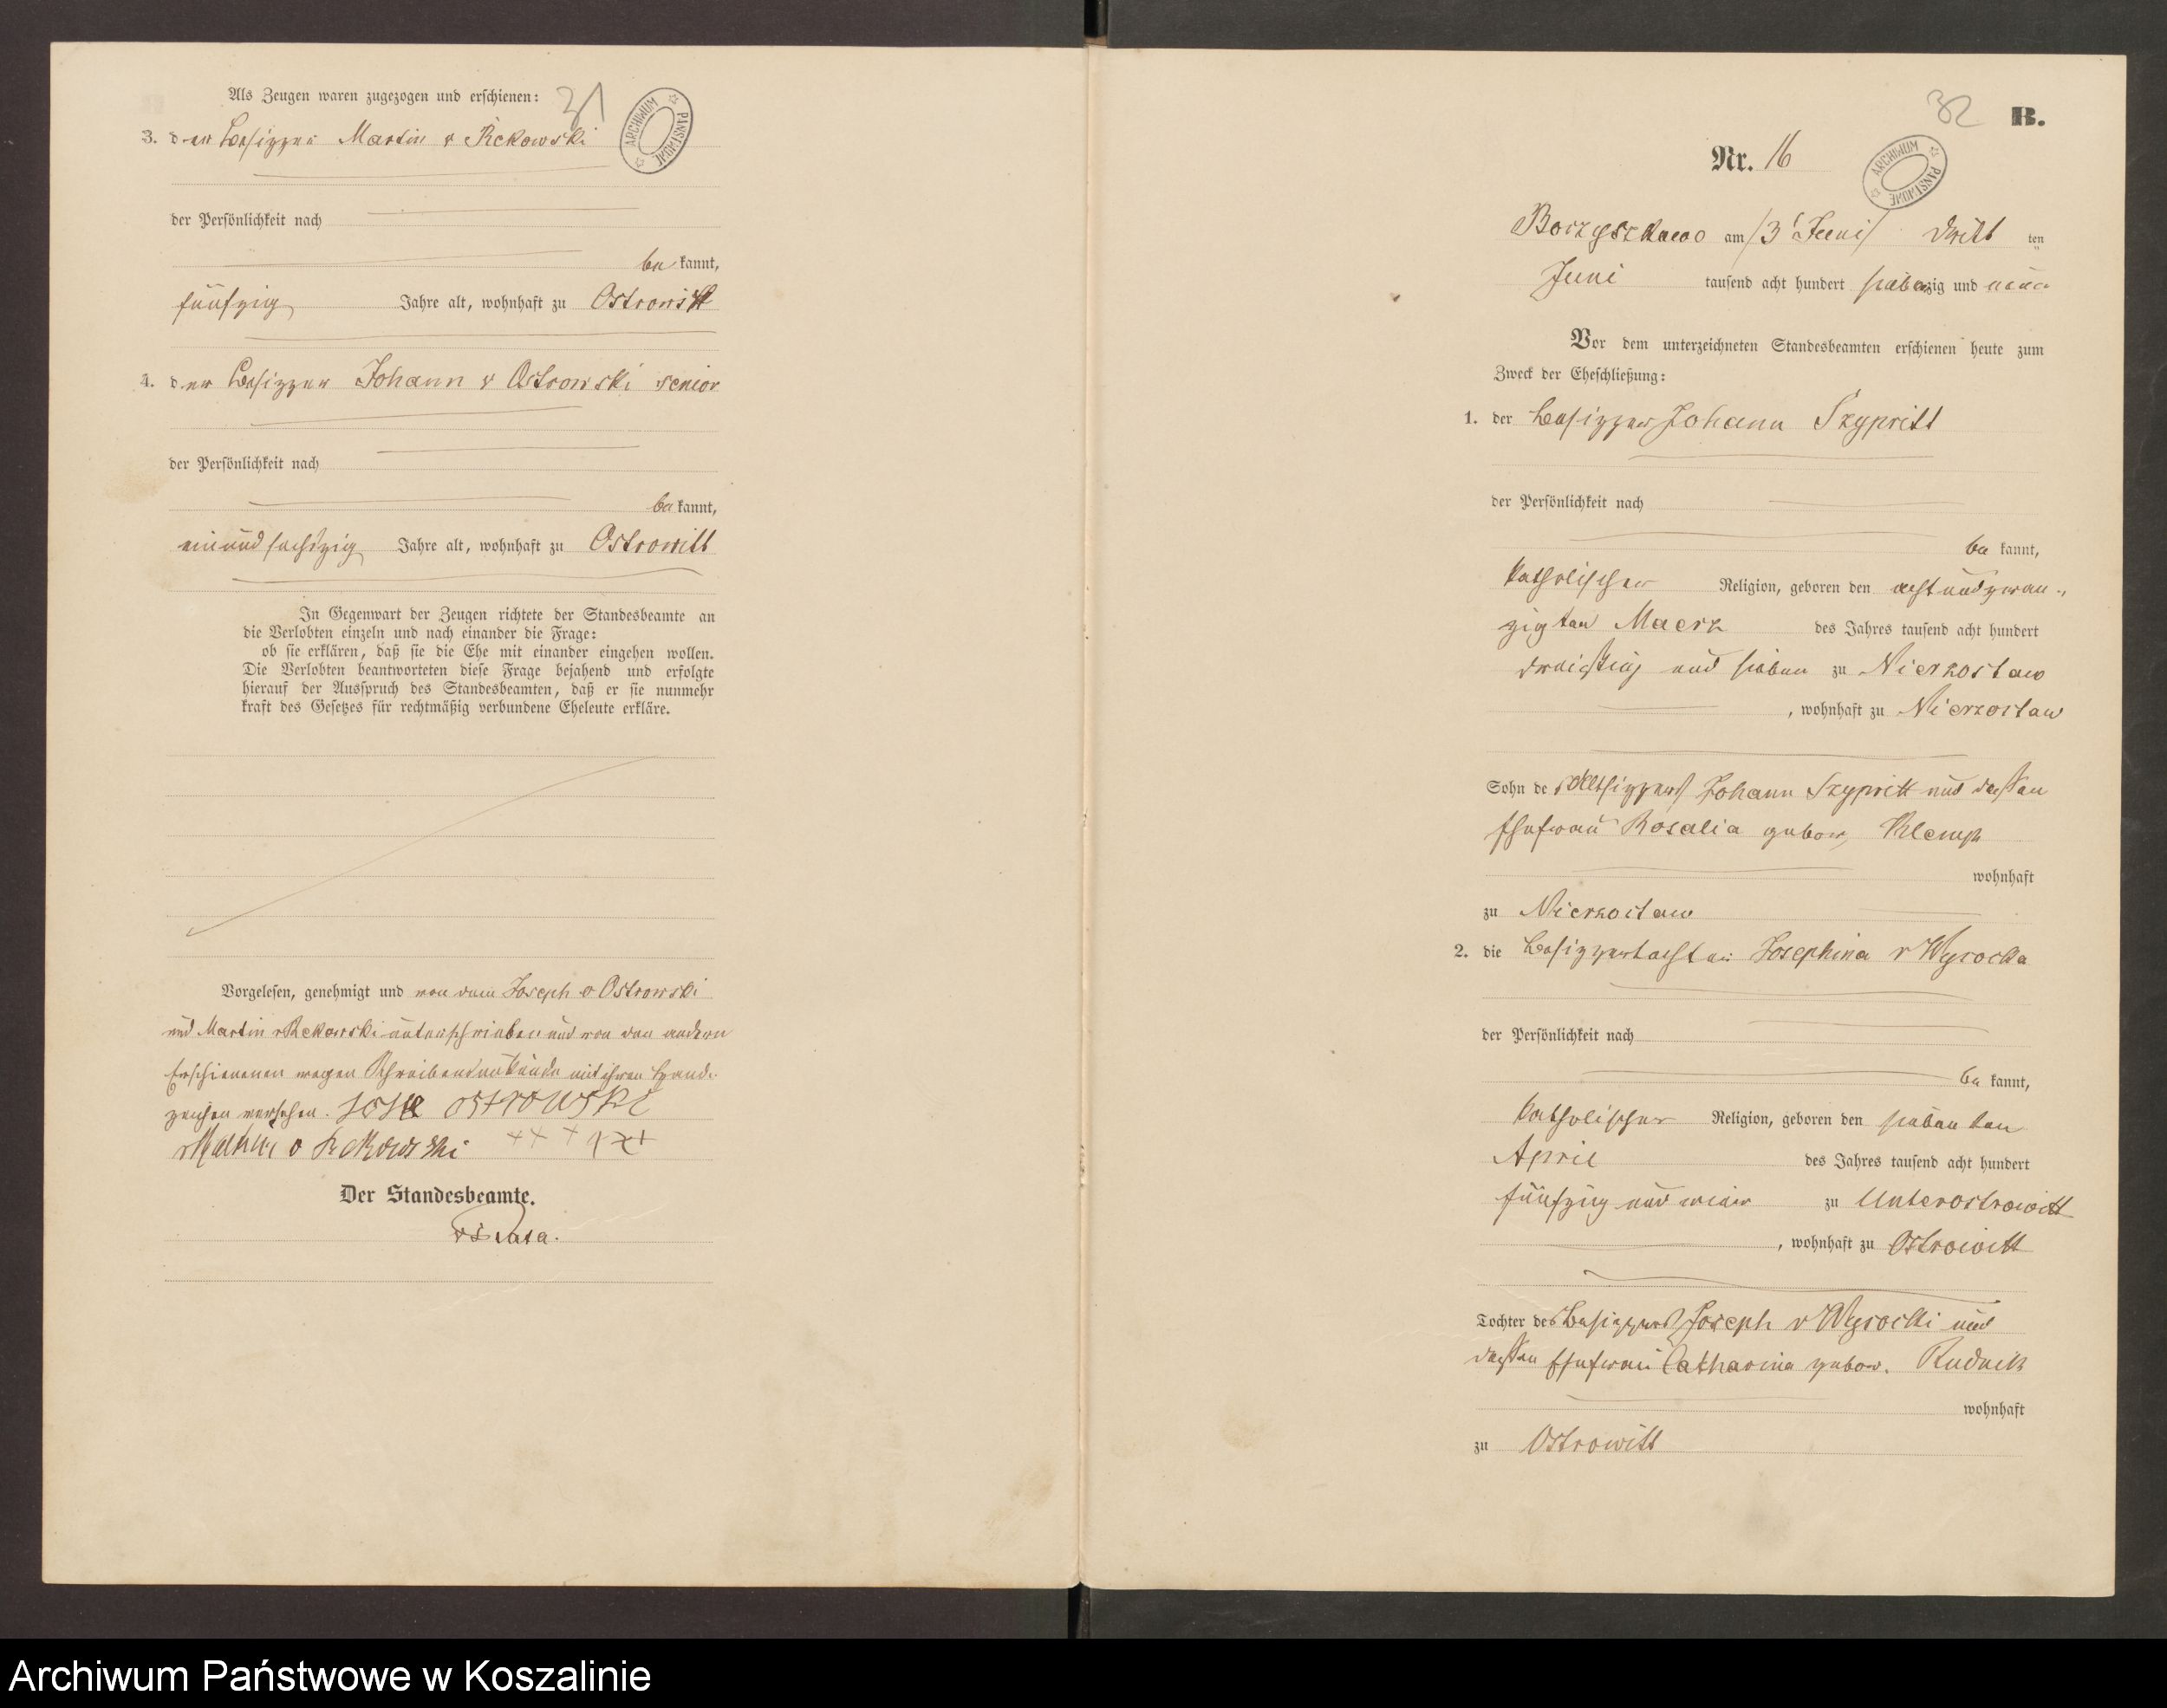 Als Zeugen waren zugezogen und erschienen:
31
ARCHIWUM PAŃSTWOWE
3. der Besitzer Martin v Rekowski
der Persönlichkeit nach
be kannt,
fünfzig Jahre alt, wohnhaft zu Ostrowitt
4. der Besitzer Johann v Ostrowski senior
der Persönlichkeit nach
be kannt,
ein und sechszig Jahre alt, wohnhaft zu Ostrowitt
In Gegenwart der Zeugen richtete der Standesbeamte an
die Verlobten einzeln und nach einander die Frage:
ob sie erklären, daß sie die Ehe mit einander eingehen wollen.
Die Verlobten beantworteten diese Frage bejahend und erfolgte
hierauf der Ausspruch des Standesbeamten, daß er sie nunmehr
kraft des Gesetzes für rechtmäßig verbundene Eheleute erkläre.
Vorgelesen, genehmigt und von dem Joseph v Ostrowski
und Martin v Rekowski unterschrieben und von den andern
Erschienenen wegen Schreibensunkunde mit ihren Hand-
zeichen versehen. Ostrowski
v Rekowski +++ +++
Der Standesbeamte.
32
B.
Nr. 16
ARCHIWUM PAŃSTWOWE
Borzyszkowo am /3t Juni/ dritt ten
Juni tausend acht hundert siebenzig und neun
Vor dem unterzeichneten Standesbeamten erschienen heute zum
Zweck der Eheschließung:
1. der Besitzer Johann Szypritt
der Persönlichkeit nach
be kannt,
katholischer Religion, geboren den achtundzwan-
zigten Maerz des Jahres tausend acht hundert
dreißig und sieben zu Nierzostaw
, wohnhaft zu Nierzostaw
Sohn des Altsitzers Johann Szypritt und dessen
Ehefrau Rosalia gebor. Klemp
wohnhaft
zu Nierzostaw
2. die Besitzertochter Josephina v Wysocka
der Persönlichkeit nach
be kannt,
katholischer Religion, geboren den siebenten
April des Jahres tausend acht hundert
fünfzig und vier zu Unterostrowitt
, wohnhaft zu Ostrowitt
Tochter des Besitzers Joseph v Wysocki und
dessen Ehefrau Catharina gebor. Rudnik
wohnhaft
zu Ostrowitt
Archiwum Państwowe w Koszalinie